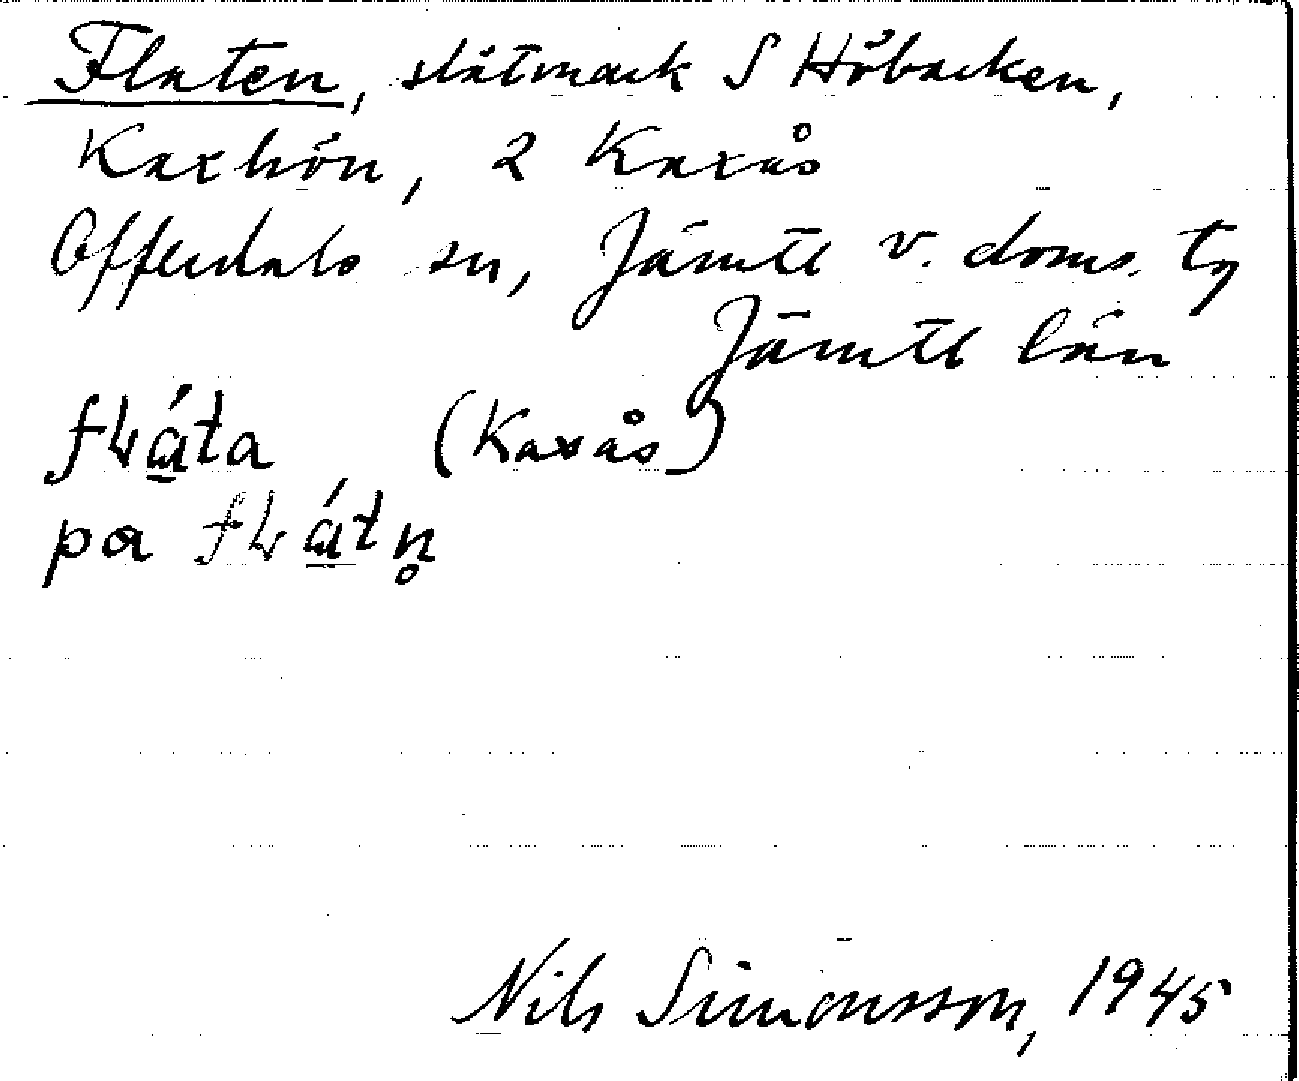 Flaten, slåtmark S Höbacken,
Kaxhön, 2 Kaxås
Offerdals sn, Jämtl v. doms. tg
Jämtl län
fɫáta (Kaxås)
pa fɫátn̥
Nils Simonsson, 1945